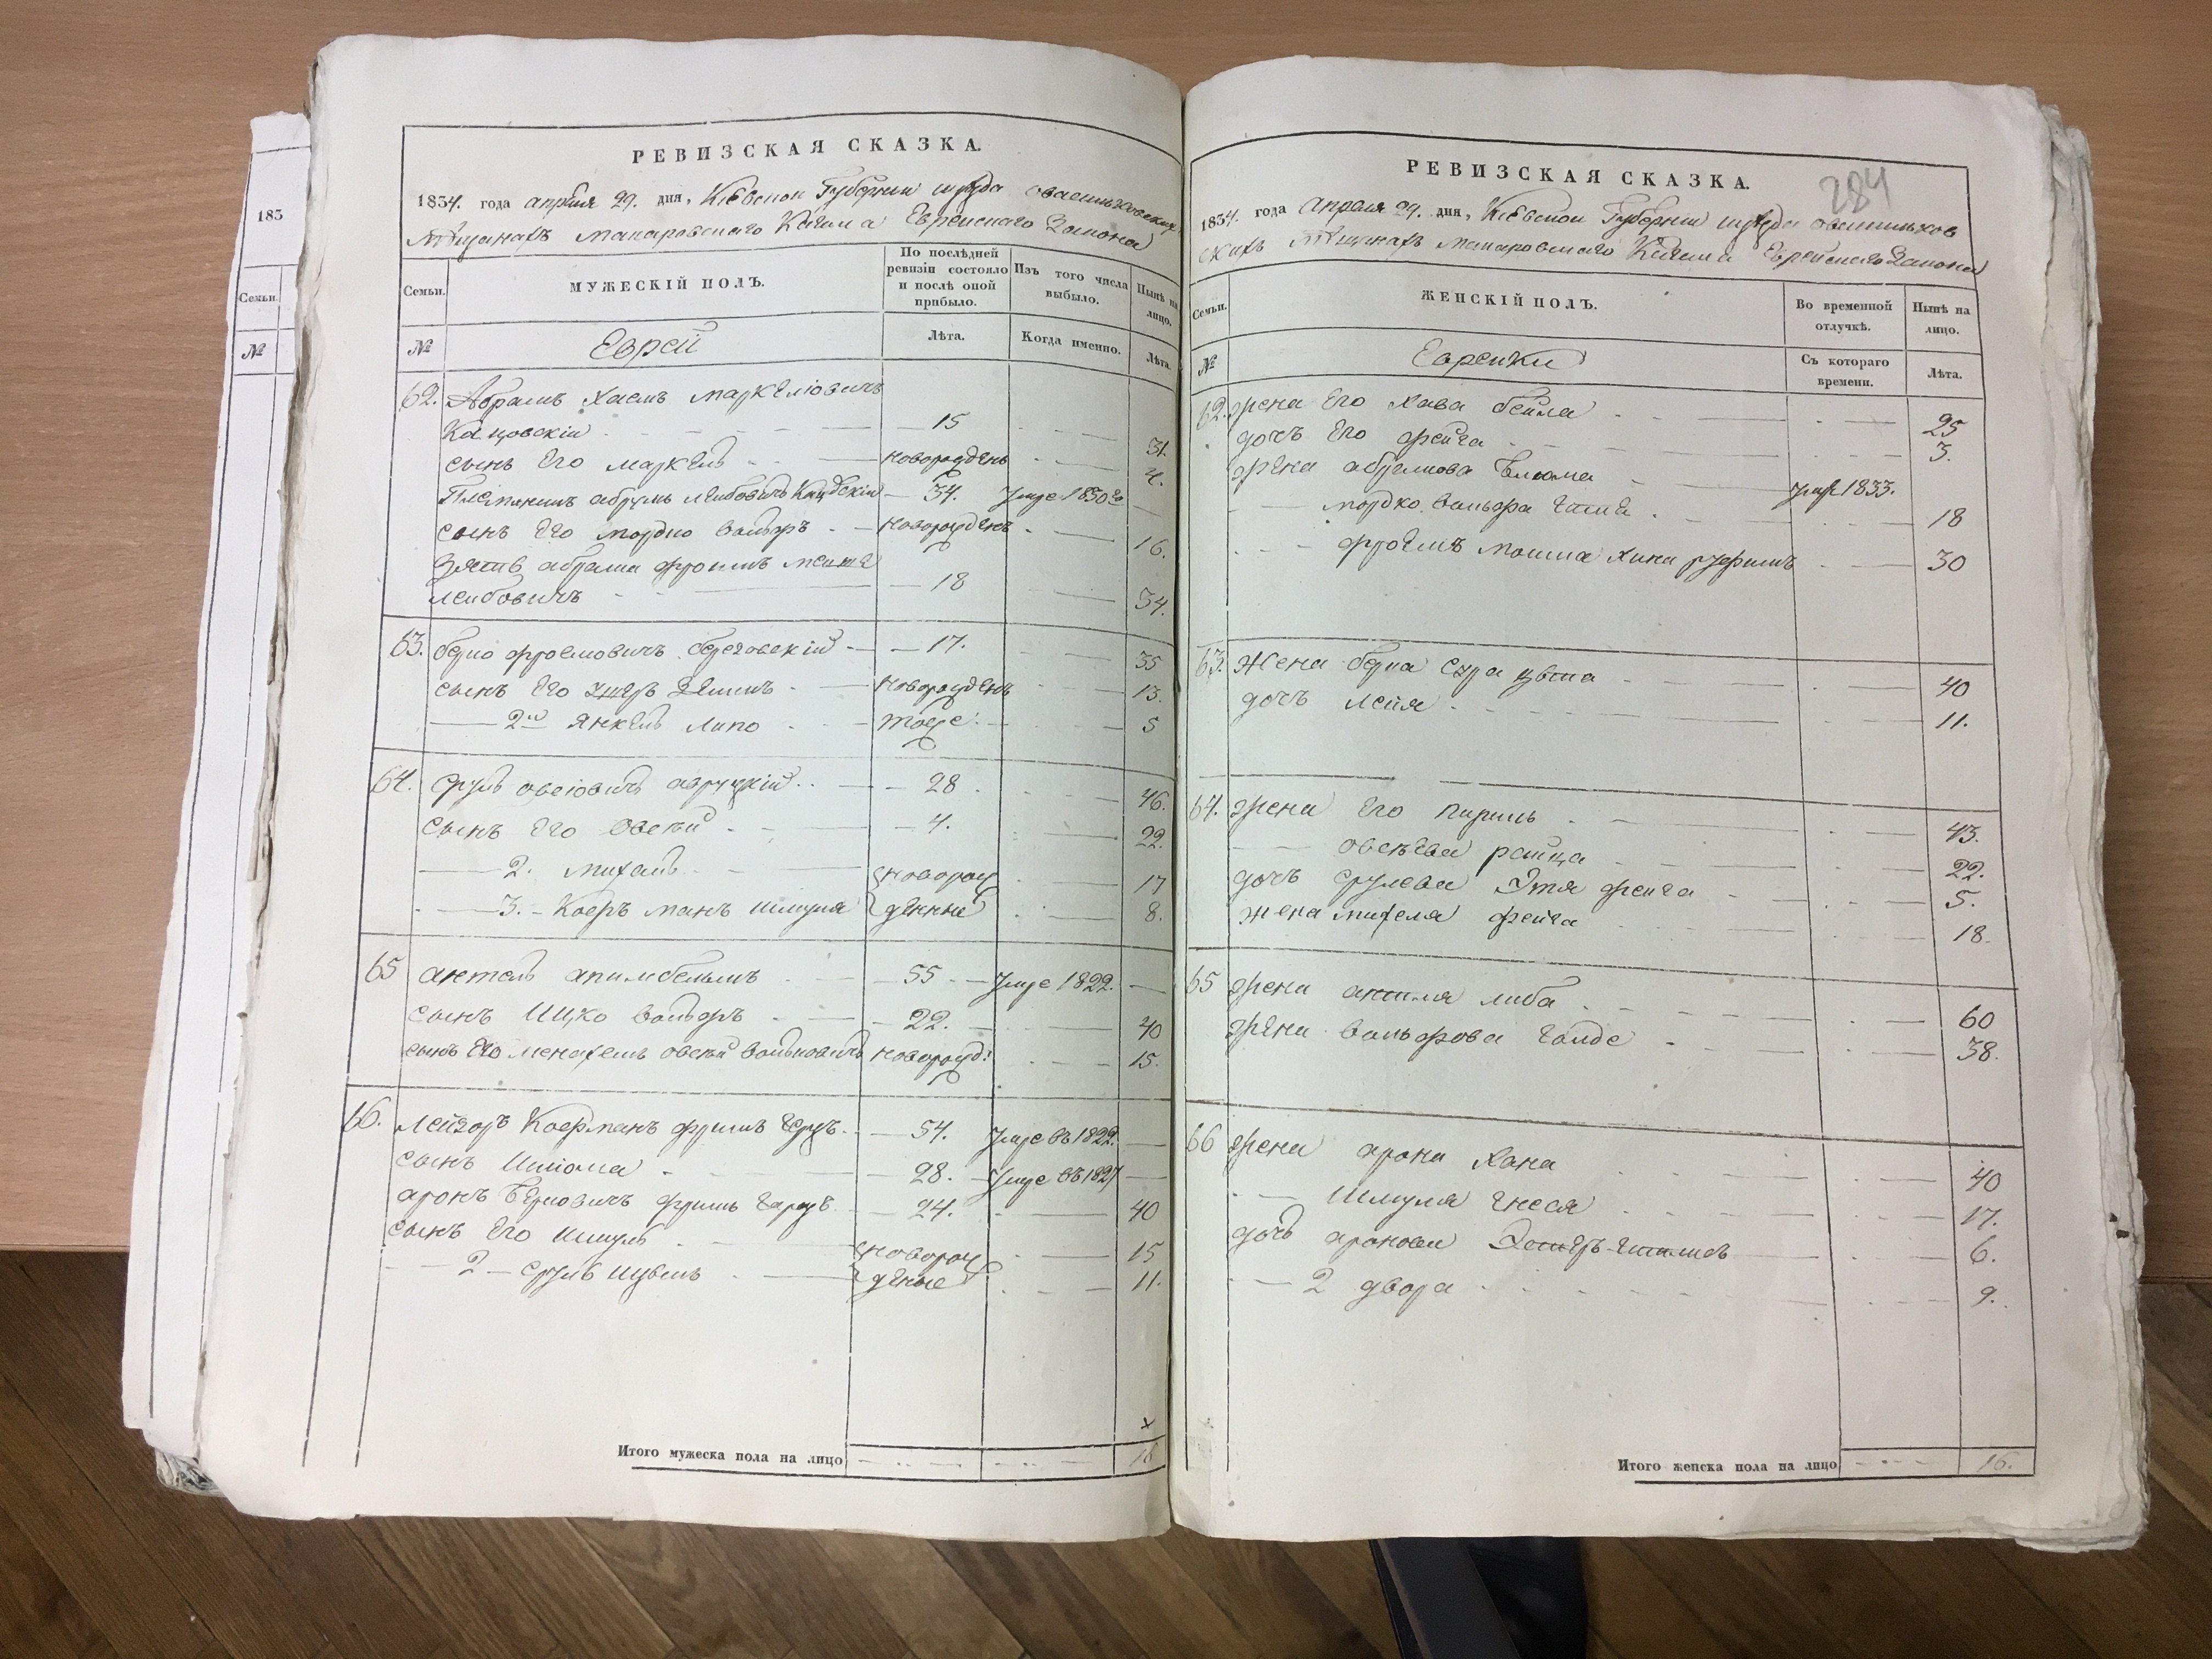 183
Семьи.
№
РЕВИЗСКАЯ СКАЗКА.
1834. года апреля 29. дня, Кіевской Губерніи уезда о васильковскихъ
Мѣщанахъ Макаровскаго Кагала Еврейскаго Закона
Семьи.
МУЖЕСКІЙ ПОЛЪ.
По послѣдней ревизіи состояло и послѣ оной прибыло.
Изъ того числа выбыло.
Нынѣ на лицо.
№
Еврей
Лѣта.
Когда именно.
Лѣта.
62. Абрамъ Хаемъ Маркеліовичъ
Кацовскій 15 31.
сынъ Его маркель новорожденъ 4.
Племянник абрумъ Лейбовичъ 34. Умре 1830го
сынъ Его мордко вольфъ новорожденъ 16.
Зять абрама фроимъ
Лейбовичъ 18 34.
63. берко фроемовичъ береговскій 17. 35
сынъ Его новорожденъ 13.
2й Янкель Липо тоже 5
64. Сруль овсіовичъ авруцкій 28 46.
сынъ Его Овсей 4. 22.
2. михель новорож 17
3. Коерманъ шмуля денные 8.
65 антель 55 Умре 1822.
сынъ Ицко вольфъ 22. 40
сынъ Его менахемъ овсей вольковичъ новорожд: 15.
66. Лейзоръ Коерманъ 54. Умре въ 1822.
сынъ Шліома 28. Умре въ 1827
аронъ Берковичъ 24. 40
сынъ Его Шмуль новорож 15
2 сруль денные 11.
Итого мужеска пола на лицо 16
284
РЕВИЗСКАЯ СКАЗКА.
1834. года Апреля 29. дня, Кіевской Губерніи уезда о васильков
скихъ Мѣщанахъ макаровскаго Кагала Еврейскаго Закона
Семьи.
ЖЕНСКІЙ ПОЛЪ.
Во временной отлучкѣ.
Нынѣ на лицо.
№
Еврейки
Съ котораго времени.
Лѣта.
62. жена Его Хава бейла 25
дочь Его фейга 3.
жена абрамова Блюма умре 1833.
мордко вольфа 18
мошка Хана 30
63. Жена берка Сура 40
дочь Лейя 11.
64. жена Его 43.
овсеева райца 22.
дочь срулева Этя фейга 5.
жена михеля фейга 18.
65 жена антеля либа 60
жена вольфова голде 38.
66 жена арона Хана 40
Шмуля гнеся 17.
дочь аронова 6.
2 двора 9.
Итого женска пола на лицо 16.